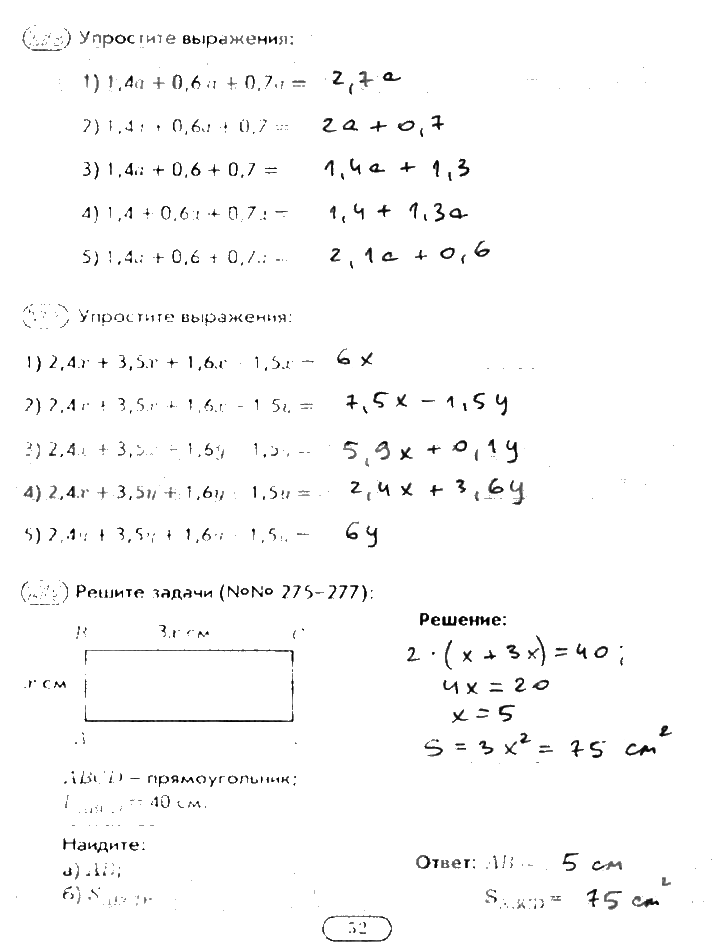 Упростите выражения:
1) 1,4a + 0,6a + 0,7a = 2,7a
2) 1,4a + 0,6a + 0,7 = 2a + 0,7
3) 1,4a + 0,6 + 0,7 = 1,4a + 1,3
4) 1,4 + 0,6a + 0,7a = 1,4 + 1,3a
5) 1,4a + 0,6 + 0,7a = 2,1a + 0,6
Упростите выражения:
1) 2,4x + 3,5x + 1,6x - 1,5x = 6x
2) 2,4x + 3,5x + 1,6x - 1,5y = 7,5x - 1,5y
3) 2,4x + 3,5x + 1,6y - 1,5y = 5,9x + 0,1y
4) 2,4x + 3,5y + 1,6y - 1,5y = 2,4x + 3,6y
5) 2,4y + 3,5y + 1,6y - 1,5y = 6y
Решите задачи (№№ 275-277):
B 3x см C
x см
A
ABCD – прямоугольник;
= 40 см.
Найдите:
а) AB;
б) S
Решение:
2 · (x + 3x) = 40;
4x = 20
x = 5
S = 3x² = 75 см²
Ответ: AB = 5 см
S ABCD = 75 см²
52